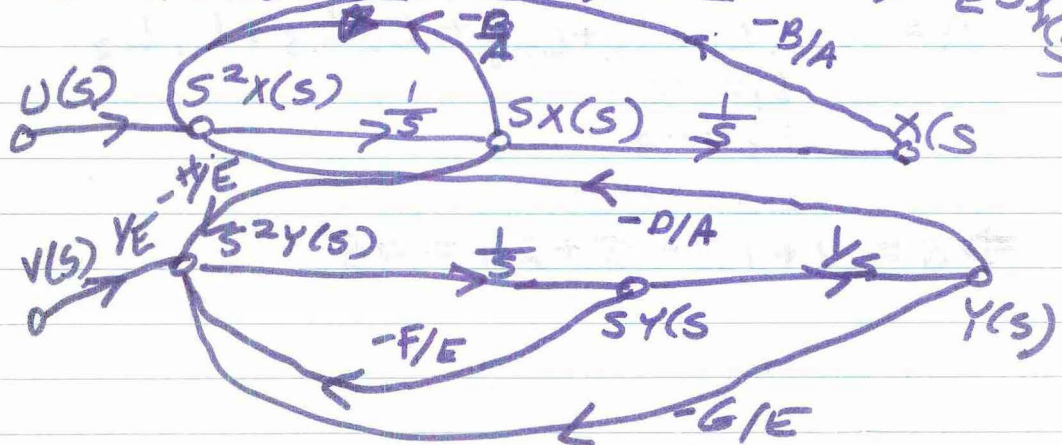 -B/A
-B/A
U(S) S²X(S) 1/S SX(S) 1/S X(S
-H/E
-D/A
V(S) 1/E S²Y(S) 1/S SY(S 1/S Y(S)
-F/E
-G/E